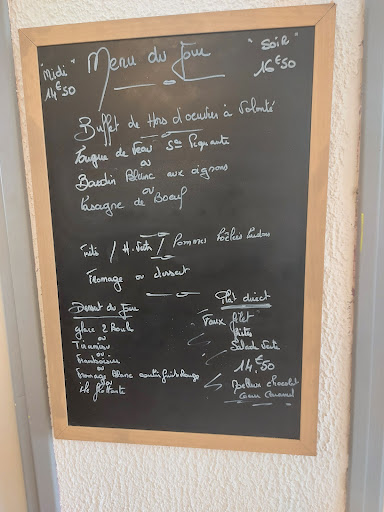 "Midi" Menu du Jour "Soir"
14€50 16€50
Buffet de Hors d'oeuvres à Volonté
Langue de Veau Sce Piquante
ou
Boudin Blanc aux oignons
ou
Lasagne de Boeuf
/ H. Verts / Pommes
Fromage ou dessert
Dessert du Jour
glace 2 Boules
ou
Tiramisu
ou
Framboisier
ou
Fromage Blanc coulis fruits Rouge
ou
île flottante
Plat direct
Faux filet
frites
Salade Verte
14,€50
Moelleux chocolat
Coeur Caramel